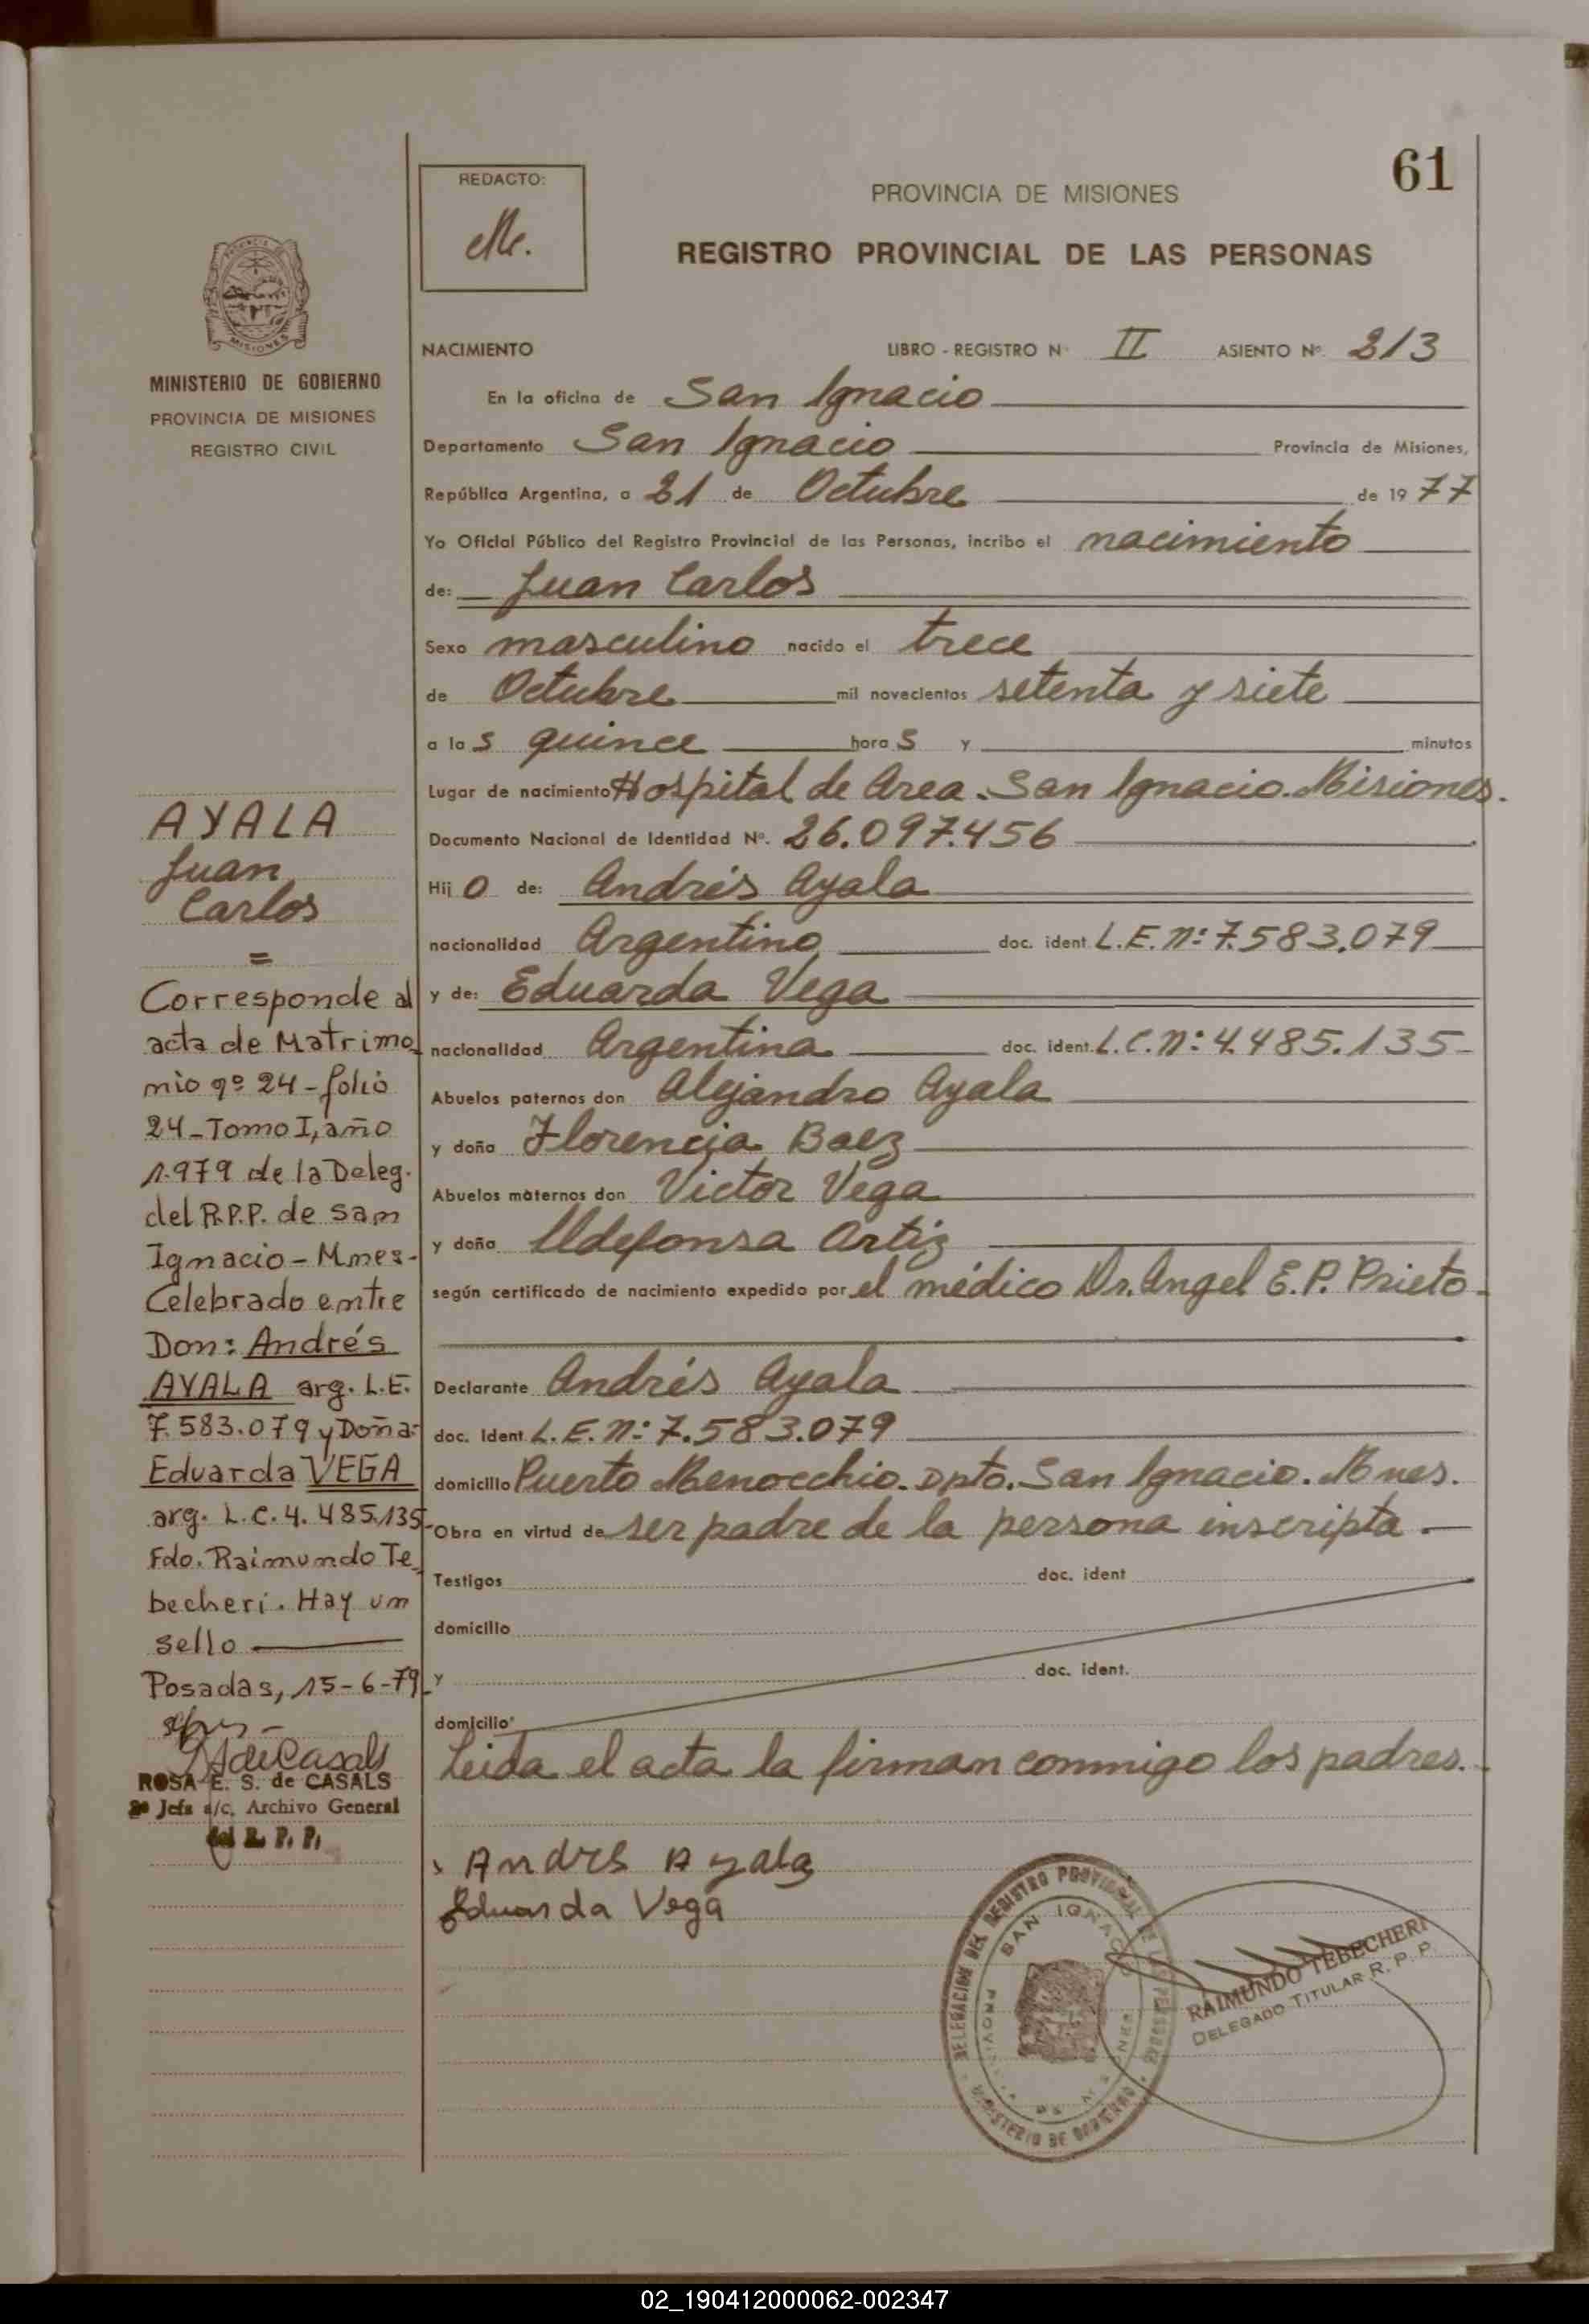 61
REDACTO:
PROVINCIA DE MISIONES
REGISTRO PROVINCIAL DE LAS PERSONAS
MINISTERIO DE GOBIERNO
PROVINCIA DE MISIONES
REGISTRO CIVIL
NACIMIENTO LIBRO - REGISTRO Nº II ASIENTO Nº 213
En la oficina de San Ignacio
Departamento San Ignacio Provincia de Misiones,
República Argentina, a 21 de Octubre de 1977
Yo Oficial Público del Registro Provincial de las Personas, incribo el nacimiento
de: Juan Carlos
Sexo masculino nacido el trece
de Octubre mil novecientos setenta y siete
a las quince horas y minutos
Lugar de nacimiento Hospital de Area. San Ignacio. Misiones.
Documento Nacional de Identidad Nº. 26.097.456
Hijo de: Andrés Ayala
nacionalidad Argentino doc. ident. L.E. nº: 7.583.079
y de: Eduarda Vega
nacionalidad Argentina doc. ident. L.C. nº: 4.485.135
Abuelos paternos don Alejandro Ayala
y doña Florencia Baez
Abuelos maternos don Victor Vega
y doña Ildefonsa Ortiz
según certificado de nacimiento expedido por el médico Dr. Angel E.P. Prieto-
Declarante Andrés Ayala
doc. Ident. L.E. nº: 7.583.079
domicilio Puerto Menocchio. Dpto. San Ignacio. Mnes.
Obra en virtud de ser padre de la persona inscripta.
Testigos doc. ident
domicilio
y doc. ident.
domicilio
Leida el acta la firman conmigo los padres.
Andres Ayala
Eduarda Vega
AYALA
Juan
Carlos
=
Corresponde al
acta de Matrimo
nio nº 24 - folio
24 - Tomo I, año
1.979 de la Deleg.
del R.P.P. de San
Ignacio - Mnes-
Celebrado entre
Don: Andrés
AYALA arg. L.E.
7.583.079 y Doña:
Eduarda VEGA
arg. L.C. 4.485.135-
Fdo. Raimundo Te
becheri. Hay un
sello
Posadas, 15-6-79
ROSA E. S. de CASALS
2º Jefa a/c. Archivo General
del R. P. P.
DELEGACION DEL REGISTRO PROVINCIAL DE LAS PERSONAS
SAN IGNACIO
MINISTERIO DE GOBIERNO
RAIMUNDO TEBECHERI
DELEGADO TITULAR R. P. P.
02_190412000062-002347